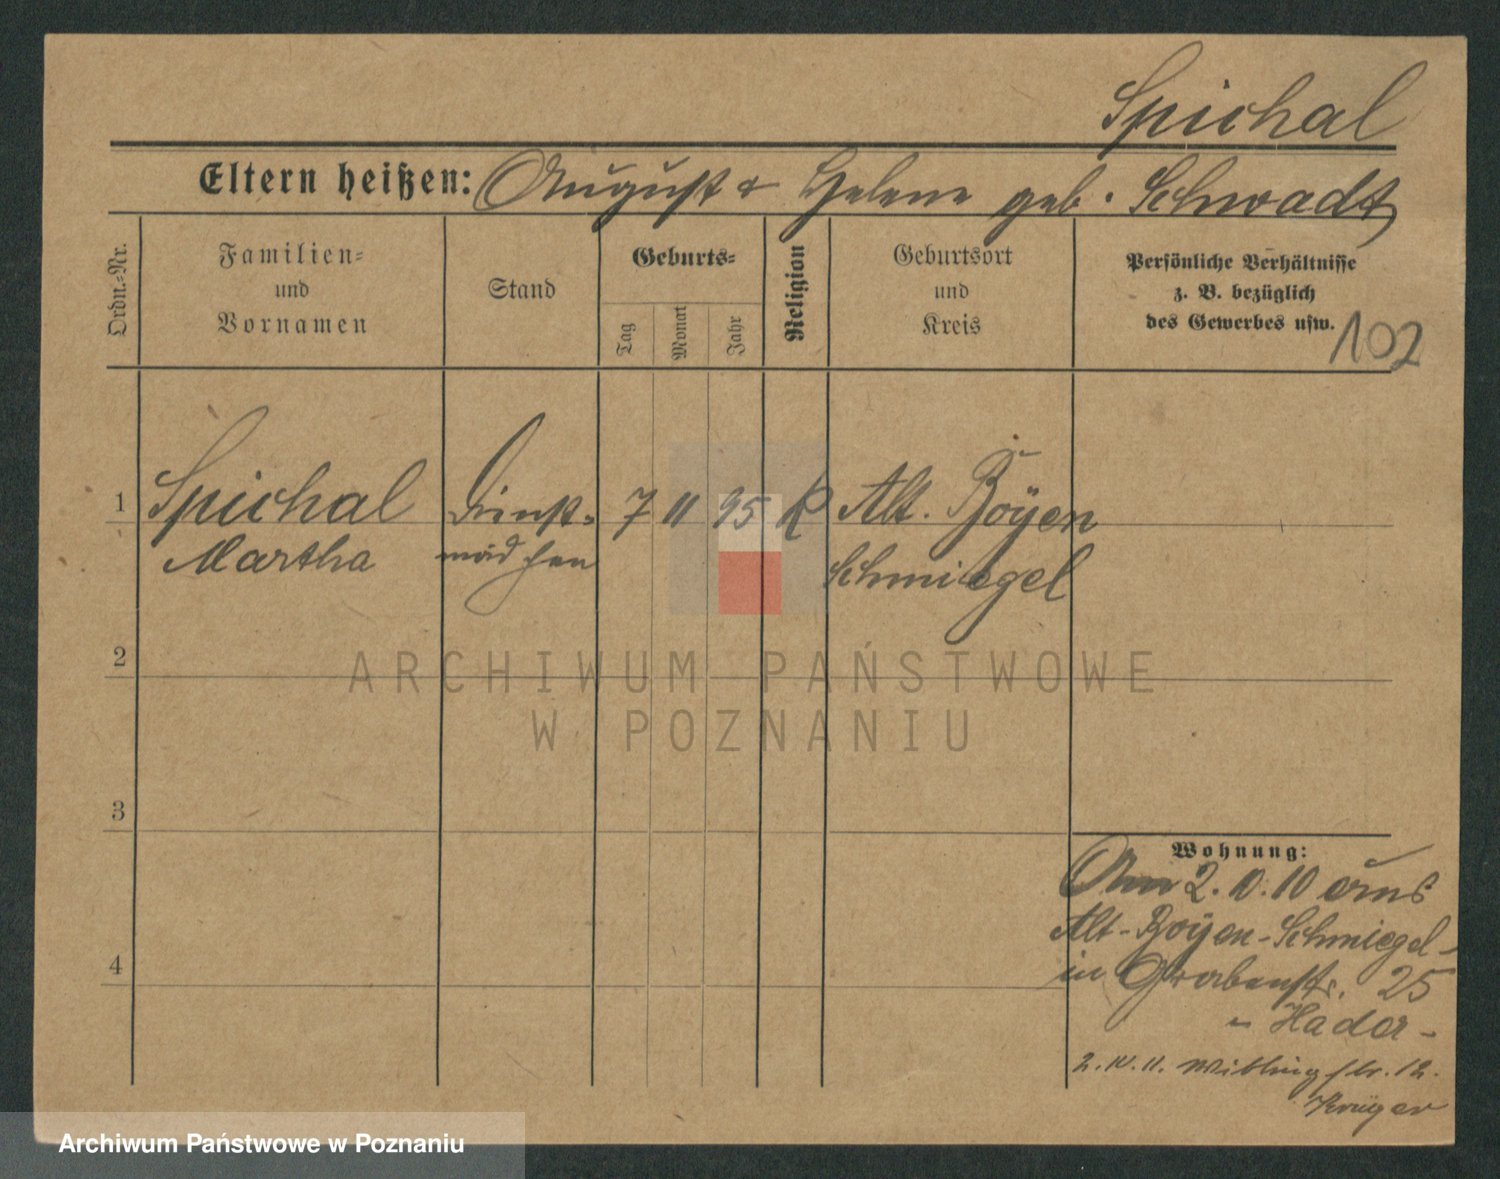 Spichal
Eltern heißen: August & Helene geb. Schwadt
Ordn.-Nr.
Familien-
und
Vornamen
Stand
Geburts-
Tag
Monat
Jahr
Religion
Geburtsort
und
Kreis
Persönliche Verhältnisse
z. B. bezüglich
des Gewerbes usw.
102
1 Spichal Dienst- 7 11 95 K Alt. Boyen
Martha mädchen Schmiegel
2
ARCHIWUM PAŃSTWOWE
W POZNANIU
3
Wohnung:
Am 2.10.10 aus
Alt-Boyen-Schmiegel-
4
in Grabenstr. 25
Hador-
2.IV.11. str. 12.
Krüger
Archiwum Państwowe w Poznaniu